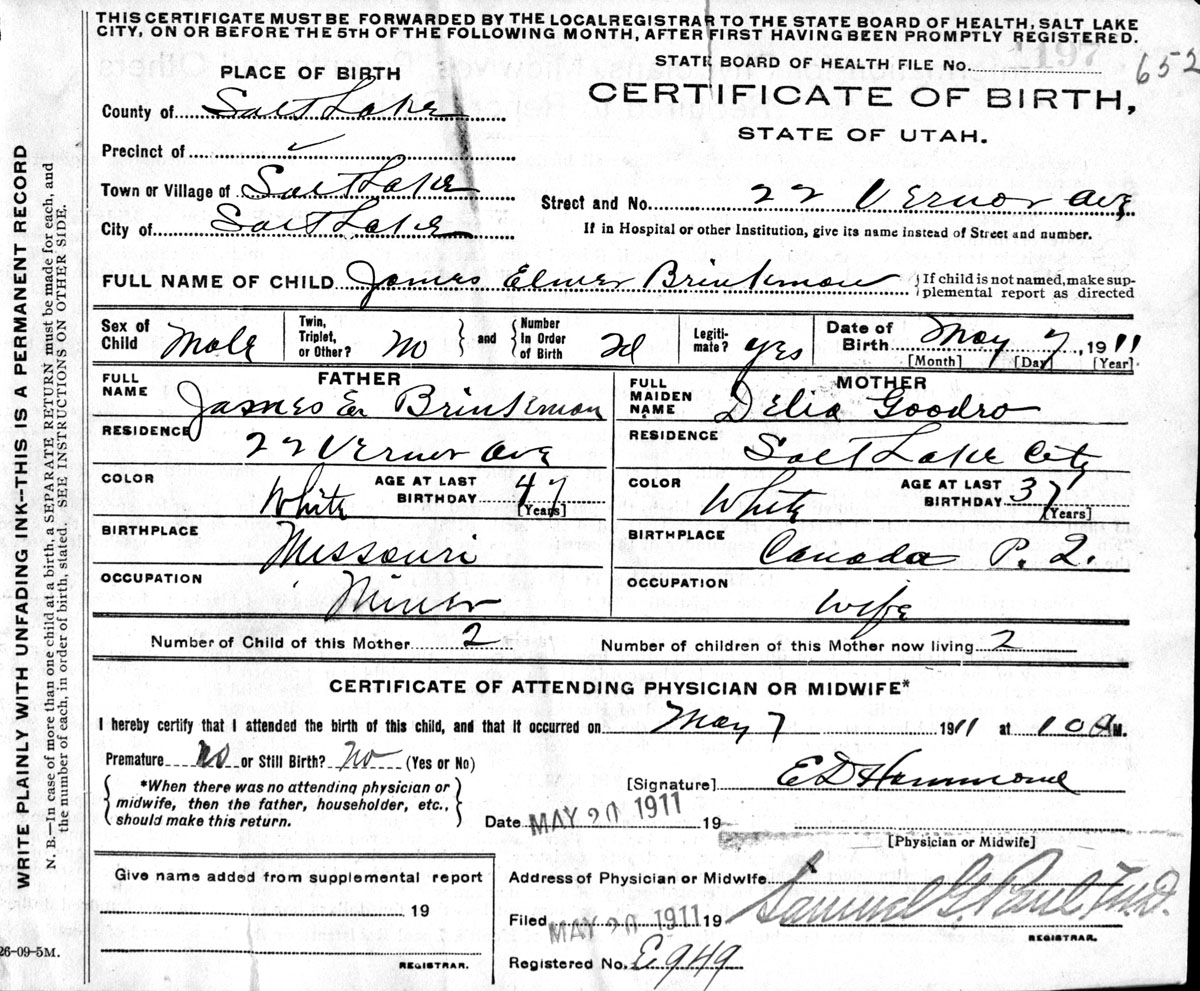 THIS CERTIFICATE MUST BE FORWARDED BY THE LOCALREGISTRAR TO THE STATE BOARD OF HEALTH, SALT LAKE
CITY, ON OR BEFORE THE 5TH OF THE FOLLOWING MONTH, AFTER FIRST HAVING BEEN PROMPTLY REGISTERED.
STATE BOARD OF HEALTH FILE NO. 1197 652
PLACE OF BIRTH
CERTIFICATE OF BIRTH,
STATE OF UTAH.
County of Salt Lake
Precinct of
Town or Village of Salt Lake
City of Salt Lake
Street and No. 22 Vernor Ave
If in Hospital or other Institution, give its name instead of Street and number.
FULL NAME OF CHILD James Elmer Brinkman
{If child is not named, make sup-
plemental report as directed
Sex of Child Male
Twin, Triplet, or Other? No
} and {
Number In Order of Birth 2d
Legiti-mate? yes
Date of Birth May 7, 1911
[Month] [Day] [Year]
FATHER
FULL NAME James E Brinkman
RESIDENCE 22 Vernor Ave
COLOR White
AGE AT LAST BIRTHDAY 47
[Years]
BIRTHPLACE Missouri
OCCUPATION Miner
MOTHER
FULL MAIDEN NAME Delia Goodro
RESIDENCE Salt Lake City
COLOR White
AGE AT LAST BIRTHDAY 37
[Years]
BIRTHPLACE Canada P. Q.
OCCUPATION wife
Number of Child of this Mother 2
Number of children of this Mother now living 2
CERTIFICATE OF ATTENDING PHYSICIAN OR MIDWIFE*
I hereby certify that I attended the birth of this child, and that it occurred on May 7 1911 at 10 A M.
Premature no or Still Birth? No (Yes or No)
{ *When there was no attending physician or
midwife, then the father, householder, etc.,
should make this return. }
[Signature] E D Hammond
Date MAY 20 1911 19
[Physician or Midwife]
Give name added from supplemental report
19
REGISTRAR.
Address of Physician or Midwife
Filed MAY 20 1911 19 Samuel G. Paul M.D.
REGISTRAR.
Registered No. E949
WRITE PLAINLY WITH UNFADING INK--THIS IS A PERMANENT RECORD
N. B.—In case of more than one child at a birth, a SEPARATE RETURN must be made for each, and
the number of each, in order of birth, stated. SEE INSTRUCTIONS ON OTHER SIDE.
26-09-5M.